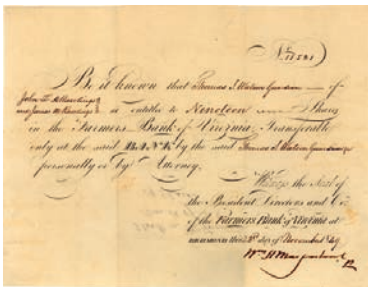 Be it known that Thomas S. Watson Guardian of
John
and James is entitled to Nineteen Shares
in the Farmers Bank of Virginia Transferable
only at the said BANK by the said Thomas S. Watson Guardian
personally or by Attorney.
Witness the Seal of
the President Directors and Co.
of the Farmers Bank of Virginia at
this day of November